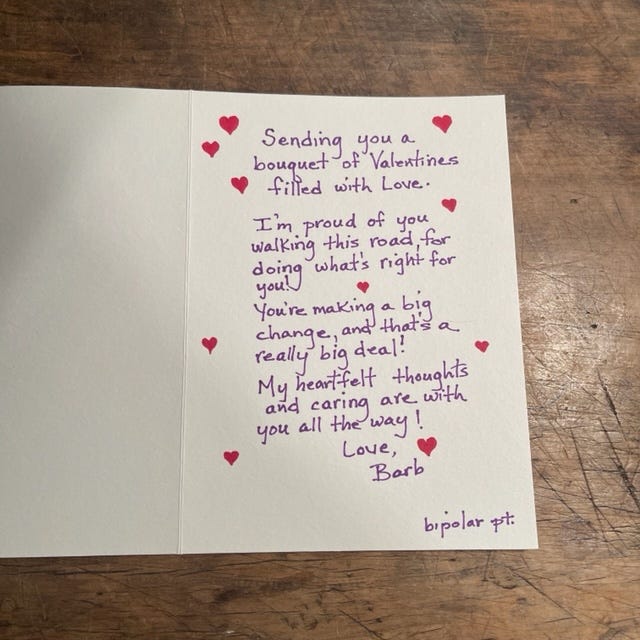 Sending you a
bouquet of Valentines
filled with Love.
I'm proud of you
walking this road, for
doing what's right for
you!
You're making a big
change, and that's a
really big deal!
My heartfelt thoughts
and caring are with
you all the way!
Love,
Barb
bipolar pt.